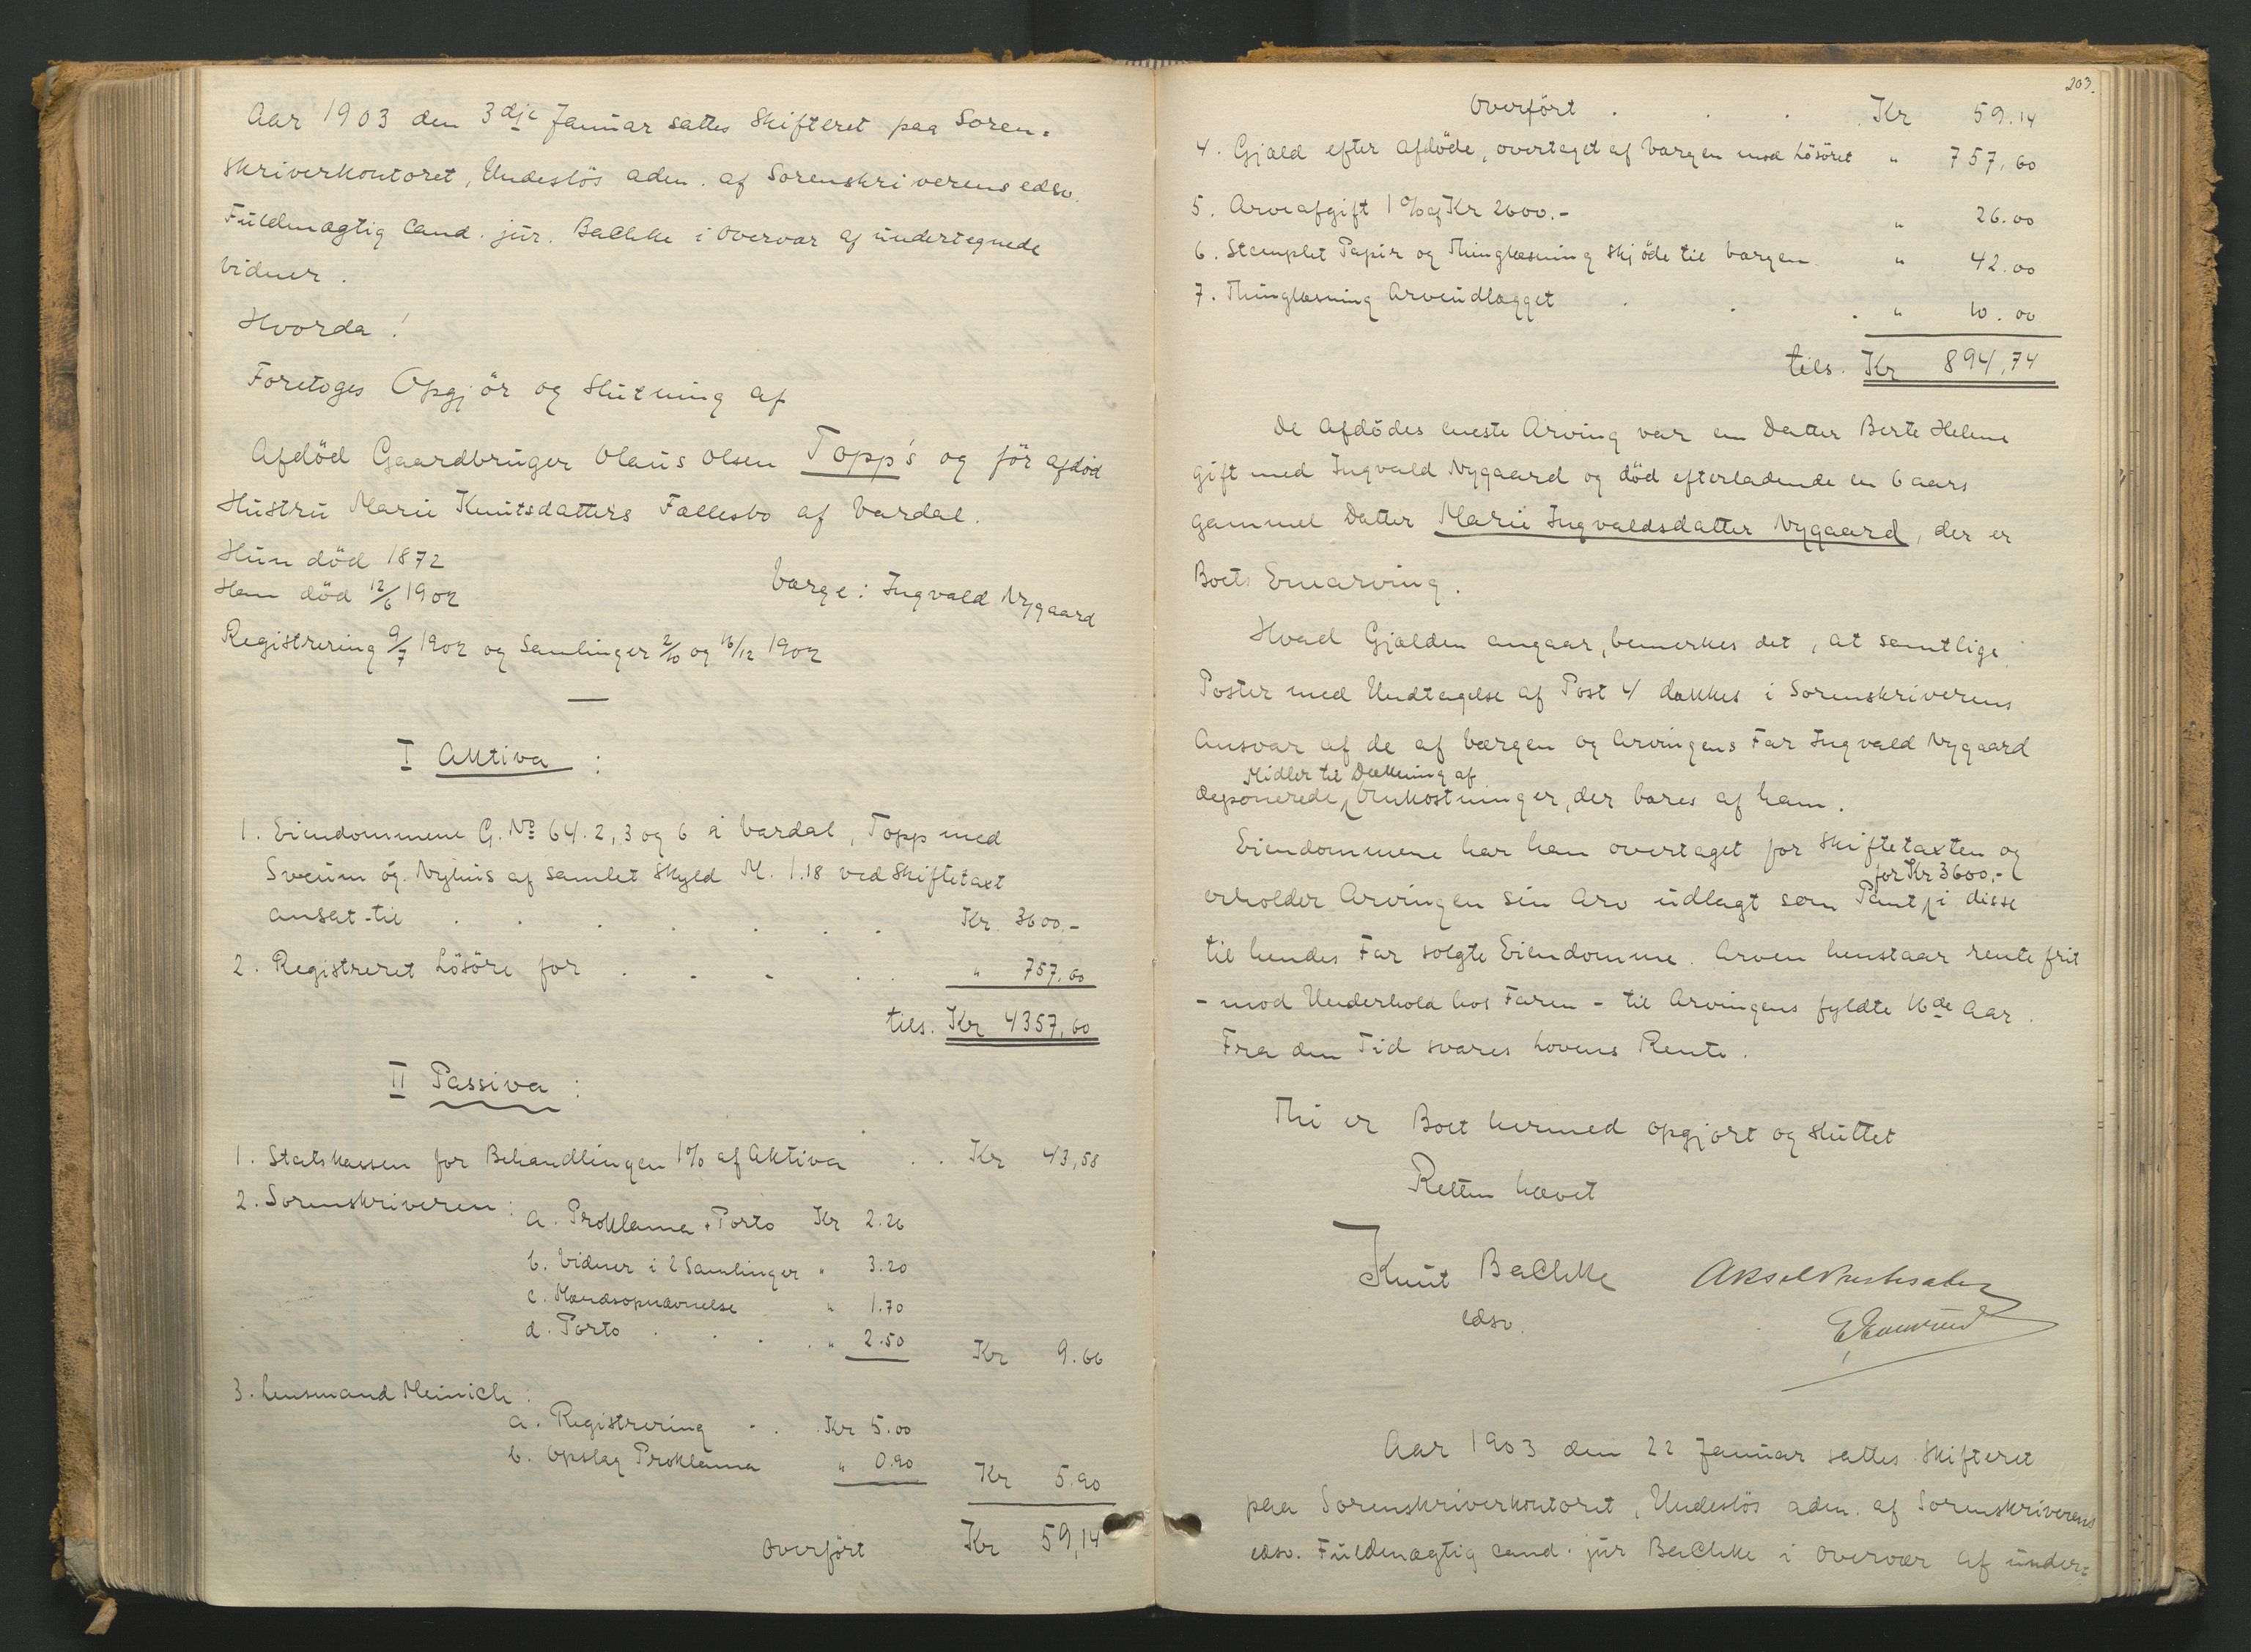 Aar 1903 den 3dje Januar sattes Skifteret paa Soren=
skriverkontoret, Undeslös adm. af Sorenskriverens edsv.
Fuldmægtig Cand. jur. Bachke i Overvær af undertegnede
Vidner.
Hvorda!
Foretoges Opgjör og Slutning af
Afdöd Gaardbruger Olaus Olsen Topp's og før afdöd
Hustru Marie Knutsdatters Fællesbo af Vardal.
Hun död 1872
Han död 12/6 1902
Værge: Ingvald Nygaard
Registrering 9/7 1902 og Samlinger 2/10 og 16/12 1902
I Aktiva:
1. Eiendommene G. No 64. 2, 3 og 6 i Vardal, Topp med
Sveum og Nyhus af samlet Skyld M. 1.18 ved Skiftetaxt
ansat til . . . . . . . Kr. 3600.-
2. Registreret Lösöre for . . . . . " 757,60
tils. Kr 4357,60
II Passiva:
1. Statskassen for Behandlingen 1% af Aktiva . . Kr 43,58
2. Sorenskriveren:
a. Proklama + Porto Kr 2.26
b. Vidner i 2 Samlinger " 3.20
c. Mændsopnævnelse " 1.70
d. Porto . . . . " 2.50 Kr 9.66
3. Lensmand Meinich:
a. Registrering . . Kr 5.00
b. Opslag Proklama " 0.90 Kr 5.90
Overført Kr 59,14
203.
Overført . . . . Kr 59.14
4. Gjæld efter Afdöde, overtaget af Værgen mod Lösöret " 757,60
5. Arveafgift 1% af Kr 2600.- " 26.00
6. Stemplet Papir og Thinglæsning Skjöde til Værgen " 42.00
7. Thinglæsning Arveudlægget . . . " 10.00
tils. Kr 894,74
De Afdödes eneste Arving var en Datter Berte Helene
gift med Ingvald Nygaard og död efterladende en 6 aars
gammel Datter Marie Ingvaldsdatter Nygaard, der er
Boets Enearving.
Hvad Gjælden angaar, bemerkes det, at samtlige
Poster med Undtagelse af Post 4 dækkes i Sorenskriverens
Ansvar af de af Værgen og Arvingens Far Ingvald Nygaard
Midler til Dækning af
deponerede Omkostninger, der bæres af ham.
Eiendommene har han overtaget for Skiftetaxten og
for Kr 3600,-
erholder Arvingen sin Arv udlagt som Pant i disse
til hendes Far solgte Eiendomme. Arven henstaar rentefrit
- mod Underhold hos Faren - til Arvingens fyldte 16de Aar.
Fra den Tid svares Lovens Rente.
Thi er Boet hermed opgjort og sluttet
Retten hævet
Knut Bachke
edsv.
Aar 1903 den 22 Januar sattes Skifteret
paa Sorenskriverkontoret, Undeslös adm. af Sorenskriverens
edsv. Fuldmægtig cand. jur Bachke i Overvær af under=